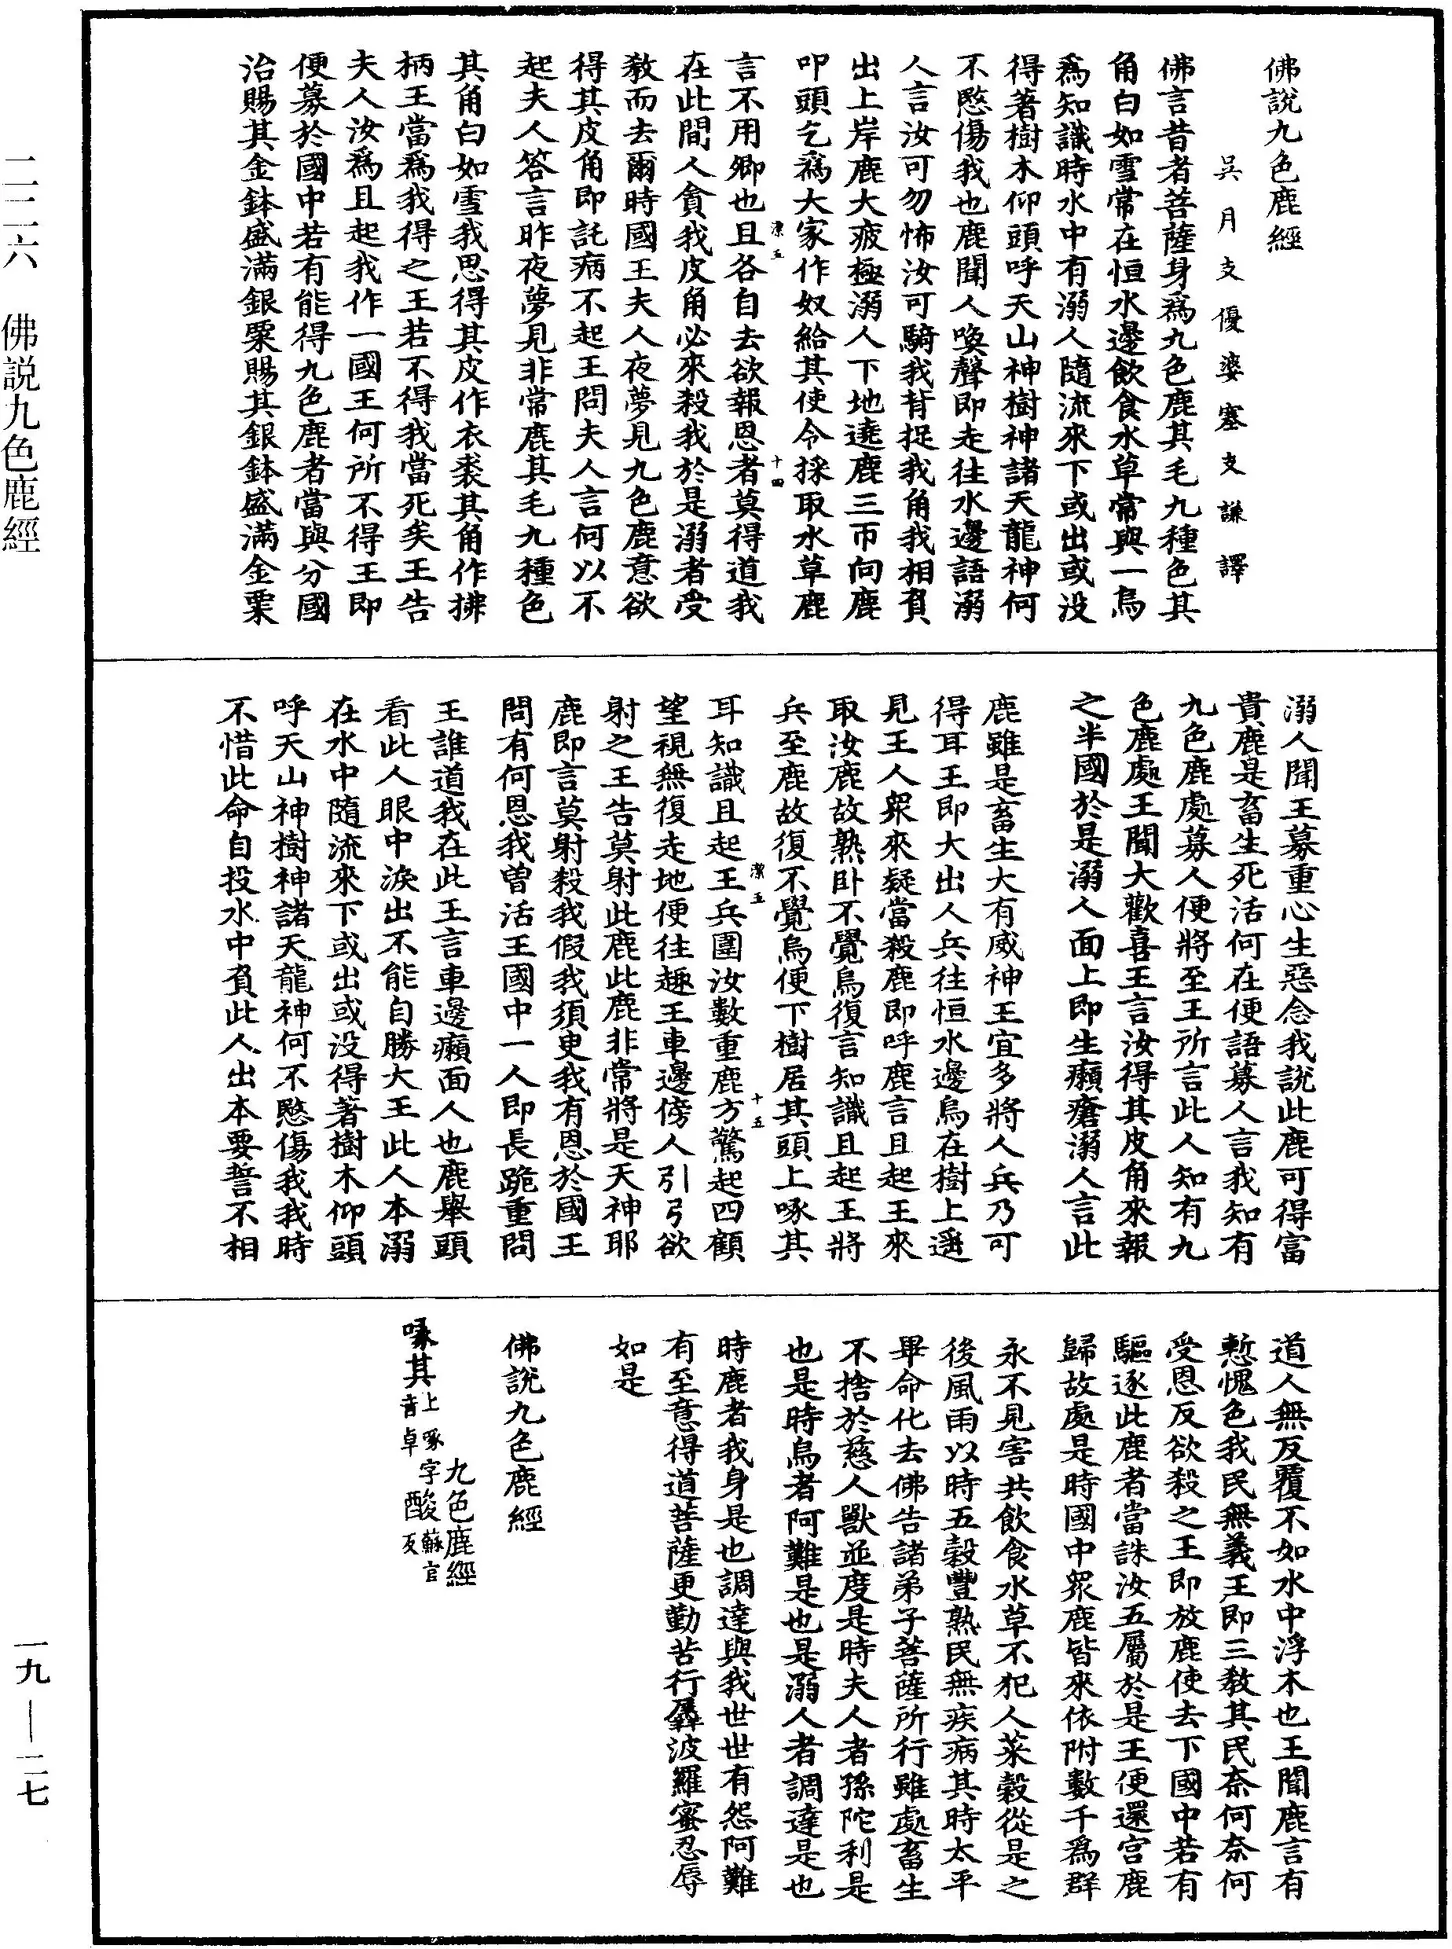 佛說九色鹿經
吳月支優婆塞支謙譯
佛言昔者菩薩身爲九色鹿其毛九種色其
角白如雪常在恒水邊飲食水草常與一烏
爲知識時水中有溺人隨流來下或出或没
得著樹木仰頭呼天山神樹神諸天龍神何
不愍傷我也鹿聞人喚聲即走往水邊語溺
人言汝可勿怖汝可騎我背捉我角我相負
出上岸鹿大疲極溺人下地遶鹿三帀向鹿
叩頭乞爲大家作奴給其使令採取水草鹿
言不用卿也且各自去欲報恩者莫得道我
潔五
十四
在此間人貪我皮角必來殺我於是溺者受
敎而去爾時國王夫人夜夢見九色鹿意欲
得其皮角即託病不起王問夫人言何以不
起夫人答言昨夜夢見非常鹿其毛九種色
其角白如雪我思得其皮作衣裘其角作拂
柄王當爲我得之王若不得我當死矣王告
夫人汝爲且起我作一國王何所不得王即
便募於國中若有能得九色鹿者當與分國
治賜其金鉢盛滿銀粟賜其銀鉢盛滿金粟
溺人聞王募重心生惡念我說此鹿可得富
貴鹿是畜生死活何在便語募人言我知有
九色鹿處募人便將至王所言此人知有九
色鹿處王聞大歡喜王言汝得其皮角來報
之半國於是溺人面上即生癩瘡溺人言此
鹿雖是畜生大有威神王宜多將人兵乃可
得耳王即大出人兵往恒水邊烏在樹上遥
見王人衆來疑當殺鹿即呼鹿言且起王來
取汝鹿故熟卧不覺烏復言知識且起王將
兵至鹿故復不覺烏便下樹居其頭上啄其
潔五
十五
耳知識且起王兵圍汝數重鹿方驚起四顧
望視無復走地便往趣王車邊傍人引弓欲
射之王告莫射此鹿此鹿非常將是天神耶
鹿即言莫射殺我假我須臾我有恩於國王
問有何恩我曾活王國中一人即長跪重問
王誰道我在此王言車邊癩面人也鹿舉頭
看此人眼中淚出不能自勝大王此人本溺
在水中隨流來下或出或没得著樹木仰頭
呼天山神樹神諸天龍神何不愍傷我我時
不惜此命自投水中負此人出本要誓不相
道人無反覆不如水中浮木也王聞鹿言有
慙愧色我民無義王即三敎其民奈何奈何
受恩反欲殺之王即放鹿使去下國中若有
驅逐此鹿者當誅汝五屬於是王便還宮鹿
歸故處是時國中衆鹿皆來依附數千爲群
永不見害共飲食水草不犯人菜穀從是之
後風雨以時五穀豐熟民無疾病其時太平
畢命化去佛告諸弟子菩薩所行雖處畜生
不捨於慈人獸並度是時夫人者孫陀利是
也是時烏者阿難是也是溺人者調達是也
時鹿者我身是也調達與我世世有怨阿難
有至意得道菩薩更勤苦行羼波羅蜜忍辱
如是
佛說九色鹿經
九色鹿經
啄其上啄字酸蘇官反音卓
二二六 佛説九色鹿經
一九—二七